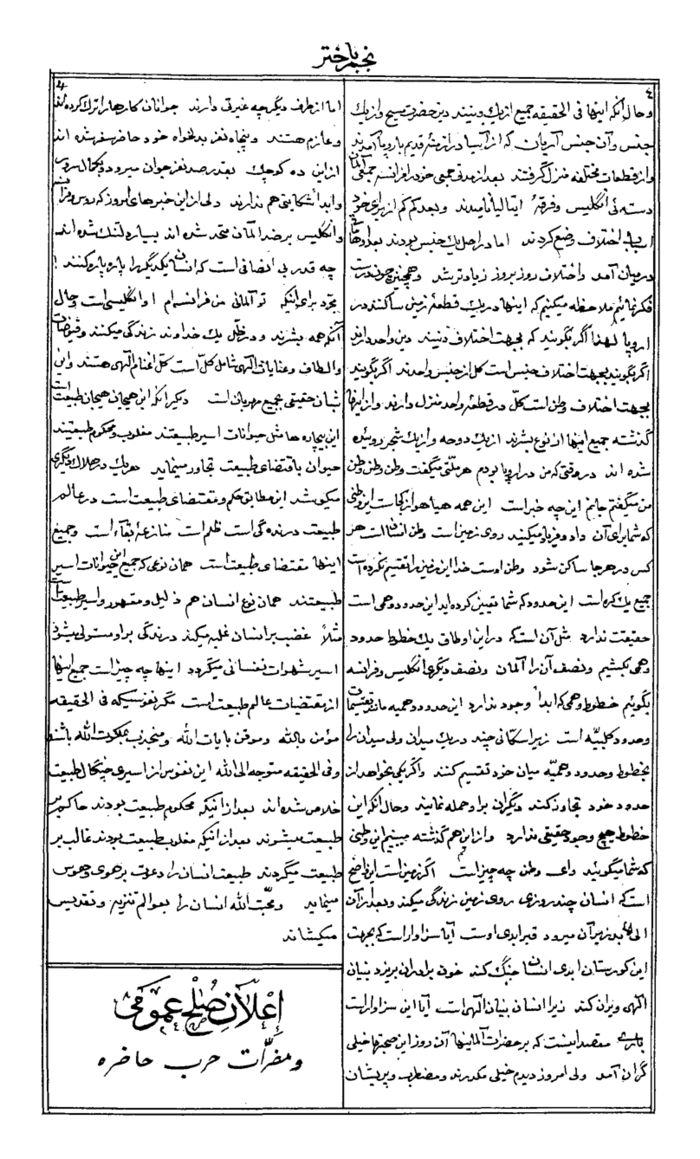 نجم باختر
٤
وحال آنکه اینها فی الحقیقه جمیع از یک دینند دین حضرت مسیح و از یک
جنس و آن جنس آریان که از آسیا در ازمنهٔ قدیم باروپا آمدند
و از قطعات مختلفه منزل گرفتند بعد از مدتی جمعی خود را فرانسه جمعی آلمان
دسته ئی انگلیس و فرقهٔ ایتالیا نامیدند و بعد کم کم از برای خود
اسباب اختلاف وضع کردند اما در اصل یک جنس بودند بعد اوهاماتی
در میان آمد و اختلاف روز بروز زیادتر شد و همچنین چون درست
فکر نمائیم ملاحظه میکنیم که اینها در یک قطعهٔ زمین ساکنند در
اروپا لهذا اگر بگویند که بجهت اختلاف دینند دین واحد دارند
اگر بگویند بجهت اختلاف جنس است کل از جنس واحدند اگر بگویند
بجهت اختلاف وطن است کلّ در قطعهٔ واحد منزل دارند و از اینها
گذشته جمیع اینها از نوع بشرند از یک دوحه و از یک شجر روئیده
شده اند در وقتی که من در اروپا بودم هر ملّتی میگفت وطن وطن وطن
من میگفتم جانم این چه خبر است این همه هیاهو از کجاست این وطنی
که شما برای آن داد و فریاد میکنید روی زمین است وطن انسان است هر
کس در هر جا ساکن شود وطن اوست خدا این زمین را تقسیم نکرده است
جمیع یک کره است این حدود که شما تعیین کرده اید این حدود وهمی است
حقیقت ندارد مثل آن است که در این اوطاق یک خطوط حدود
وهمی بکشیم و نصف آن را آلمان و نصف دیگر را انگلیس و فرانسه
بگوئیم خطوط وهمی که ابداً وجود ندارد این حدود وهمیه مانند تقسیمات
و حدود کلبیّه است زیرا سگانی چند در یک میدان ولی میدان را
بخطوط و حدود وهمیّه میان خود تقسیم کنند و اگر یکی بخواهد از
حدود خود تجاوز کند دیگران بر او حمله نمایند و حال آنکه این
خطوط هیچ وجود حقیقی ندارد و از این هم گذشته ببینیم این وطنی
که شما میگوئید وای وطن چه چیز است اگر زمین است این واضح
است که انسان چند روزی روی زمین زندگی میکند و بعد از آن
الی الابد بزیر آن میرود قبر ابدی اوست آیا سزاوار است که بجهت
این گورستان ابدی انسان جنگ کند خون برادران بریزد بنیان
الهی ویران کند زیرا انسان بنیان الهی است آیا این سزاوار است
باری مقصد اینست که بر حضرات آلمانیها آن روز این صحبتها خیلی
گران آمد ولی امروز دیدم خیلی مکدرند و مضطرب و پریشان
اما از طرف دیگر چه غیرتی دارند جوانان کارها را ترک کرده اند
و عازم هستند و پنجاه نفر بدلخواه خود حاضر سفر شده اند
از این ده کوچک بقدر صد نفر جوان میرود و بکمال سرور
و ابداً شکایتی هم ندارند ولی از این خبرهای امروز که روس و فرانسه
و انگلیس بر ضد آلمان متحد شده اند بسیار دلتنگ شده اند
چه قدر بی انصافی است که انسان یکدیگر را پاره پاره کنند !
مجرّد برای اینکه تو آلمانی من فرانسه ام او انگلیسی است حال
آنکه همه بشرند و در ظلّ یک خداوند زندگی میکنند و فیوضات
و الطاف و عنایات الهی شامل کلّ است کلّ اغنام الهی هستند و این
شبان حقیقی بجمیع مهربان است دیگر آنکه این هیجان هیجان طبیعت است
این بیچاره ها مثل حیوانات اسیر طبیعتند مغلوب و محکوم طبیعتند
حیوان باقتضای طبیعت تجاوز مینماید هر یک در هلاک دیگری
میکوشد این مطابق حکم و مقتضای طبیعت است در عالم
طبیعت درنده گی است ظلم است منازعهٔ بقاء است و جمیع
اینها مقتضای طبیعت است همان نوعی که جمیع این حیوانات اسیر
طبیعتند همان نوع انسان هم ذلیل و مقهور و اسیر طبیعت است
مثلاً غضب بر انسان غلبه میکند درندگی بر او مستولی میشود
اسیر شهوات نفسانی میگردد اینها چه چیز است جمیع اینها
از مقتضیات عالم طبیعت است مگر نفوسیکه فی الحقیقه
مؤمن بالله و موقن بآیات الله و منجذب بملکوت الله باشند
و فی الحقیقه متوجه الی الله این نفوس از اسیری چنگال طبیعت
خلاص شده اند بعد از آنیکه محکوم طبیعت بودند حاکم بر
طبیعت میشوند بعد از آنیکه مغلوب طبیعت بودند غالب بر
طبیعت میگردند طبیعت انسان را دعوت بر هوی و هوس
مینماید و محبّت الله انسان را بعوالم تنزیه و تقدیس
میکشاند
إعلان صُلح عمومی
و مضرّات حرب حاضره